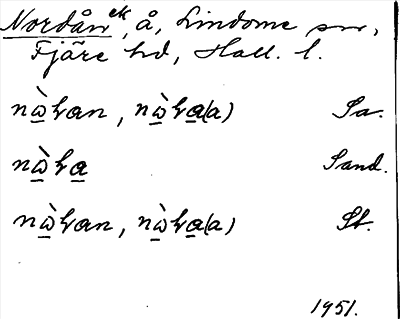 Nordån ek, å, Lindome sn,
Fjäre hd, Hall. l.
nὼkan, nὼka(a) Sa.
nὼka Sand.
nὼkan, nὼka(a) St.
1951.